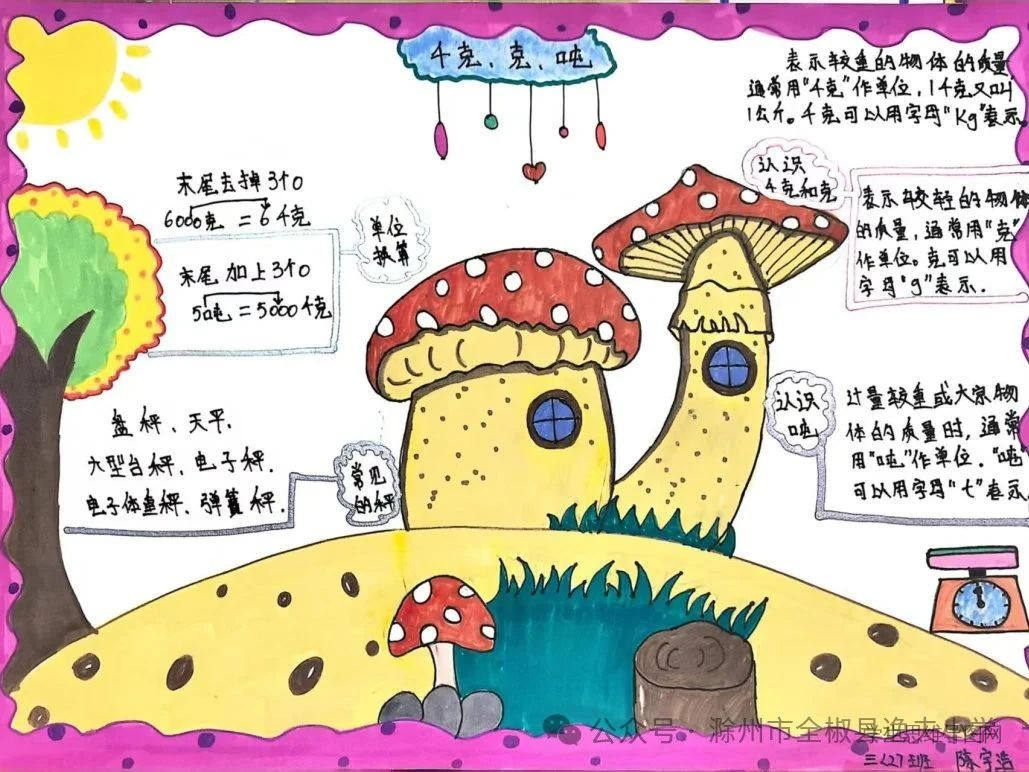 千克、克、吨
表示较重的物体的质量
通常用"千克"作单位,1千克又叫
1公斤。千克可以用字母"Kg"表示。
末尾去掉3个0
6000克=6千克
单位
换算
末尾加上3个0
5吨=5000千克
认识
千克和克
表示较轻的物体
的质量,通常用"克"
作单位。克可以用
字母"g"表示.
盘秤、天平.
大型台秤、电子秤.
电子体重秤、弹簧秤.
常见
的秤
认识
吨
计量较重或大宗物
体的质量时,通常
用"吨"作单位。"吨"
可以用字母"t"表示
公众号·滁州市全椒县逸夫小学
三(2)班 陈宇浩